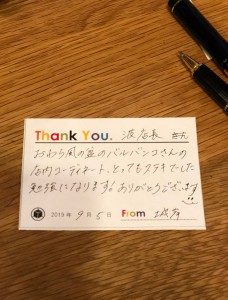 Thank You. 渡店長 さん
おわら風の盆のバルバンコさんの
店内コーディネート、とってもステキでした
勉強になります!ありがとうございます
2019年 9月 5日 From 城岸